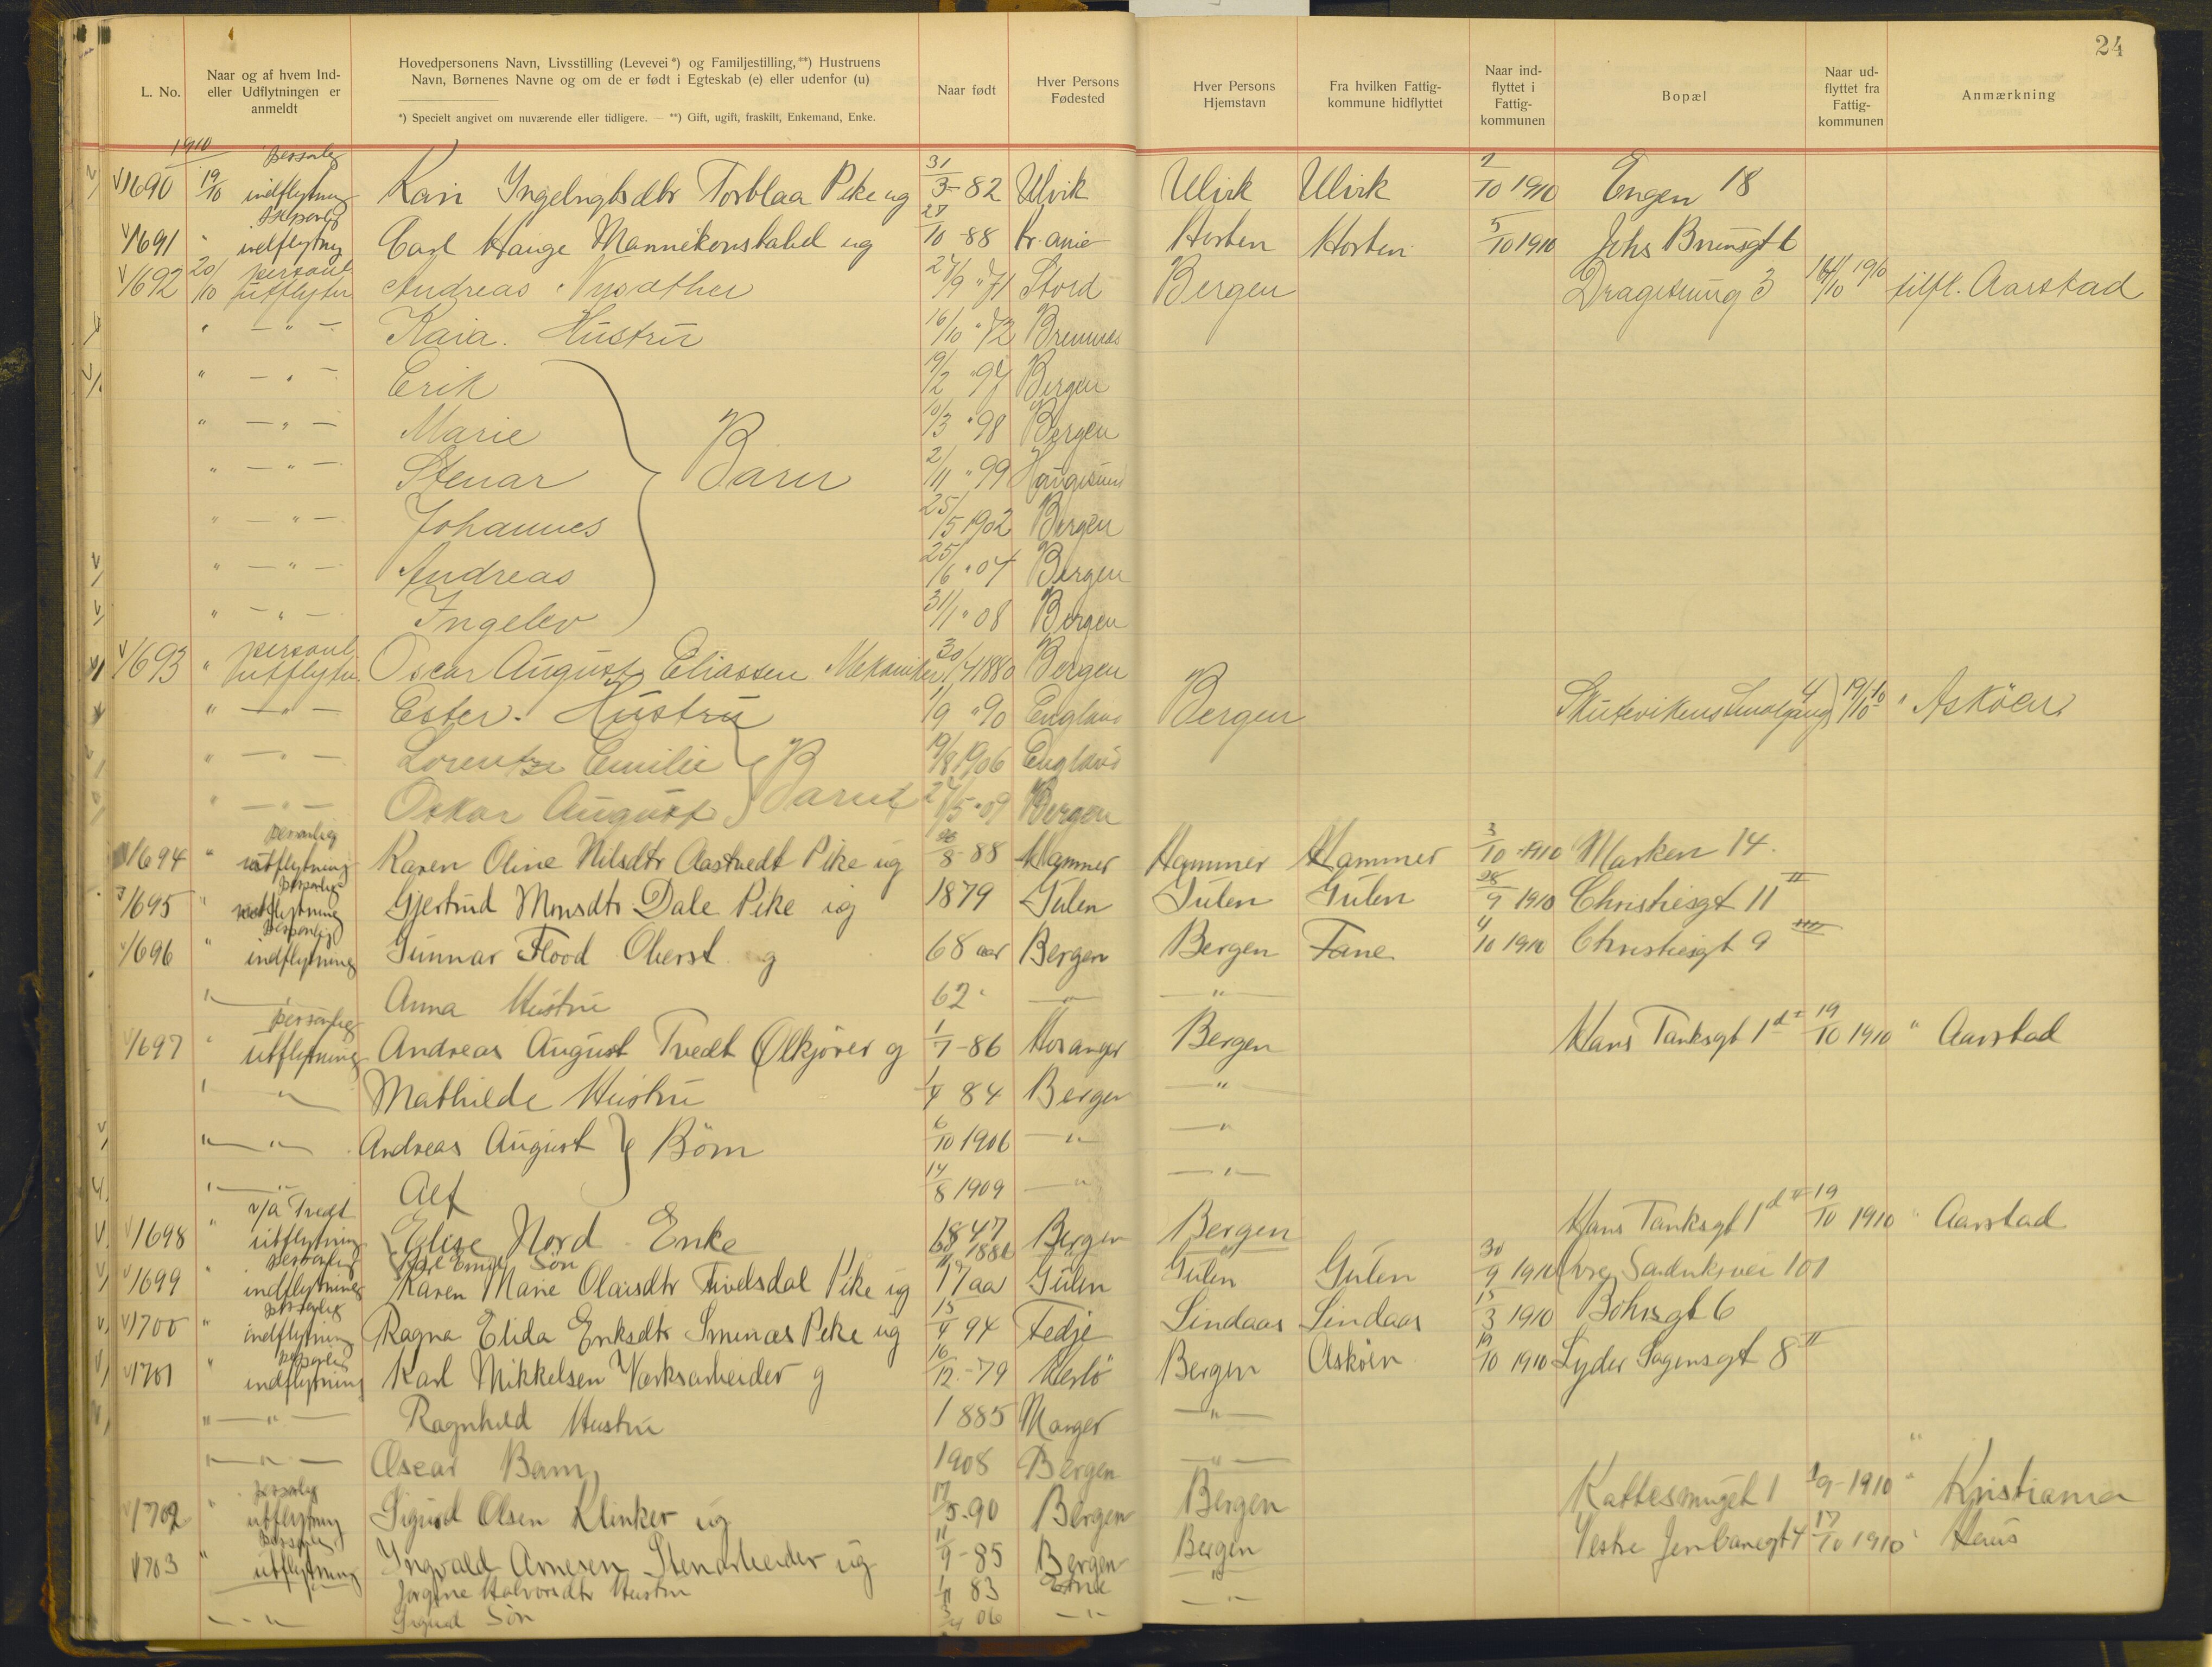 24
L. No. Naar og af hvem Ind- eller Udflytningen er anmeldt Hovedpersonens Navn, Livsstilling (Levevei *) og Familjestilling, **) Hustruens Navn, Børnenes Navne og om de er født i Egteskab (e) eller udenfor (u) Naar født Hver Persons Fødested Hver Persons Hjemstavn Fra hvilken Fattig- kommune hidflyttet Naar ind- flyttet i Fattig- kommunen Bopæl Naar ud- flyttet fra Fattig- kommunen Anmærkning
*) Specielt angivet om nuværende eller tidligere. — **) Gift, ugift, fraskilt, Enkemand, Enke.
1910
1690 19/10 personlig indflytning Kari Torblaa Pike ug 31/3-82 Ulvik Ulvik Ulvik 10 1910 Engen 18
1691 " personlig indflytning Carl Hauge ug 27/10-88 Kr.ania Horten Horten 5/10 1910 Johs Brunsgt 6
1692 20/10 personl. utflytn. Andreas Nysæther 27/9 "71 Stord Bergen 3 1910 tilfl. Aarstad
" — " — Kaia. Hustru 16/10 "72
" — " — Erik 19/2 "97 Bergen
" — " — Marie 10/3 "98 Bergen
" — " — Stenar Barn 2/11 "99 Haugesund
" — " — Johannes 25/5 1902 Bergen
" — " — Andreas 25/6 "04 Bergen
" — " — Ingelev 31/1 "08 Bergen
1693 " personl. utflytn. Oscar August Eliassen Mekaniker 30/4 1880 Bergen
" — " — Ester. Hustru 1/9 "90 England Bergen 4 19/10 10 " Asköen
" — " — Lorentze Emilie 19/8 1906 England
" — " — Oskar August Barn 27/5 "09 Bergen
1694 " personlig utflytning Karen Oline Nilsdtr Aastvedt Pike ug 8-88 Hammer Hammer Hammer 3/10 1910 Marken 14.
1695 " personlig Gjertrud Monsdtr Dale Pike ug 1879 Gulen Gulen Gulen 28/9 1910 Christiesgt 11 II
1696 " personlig indflytning Gunnar Flood Oberst g 68 aar Bergen Bergen Fane 4/10 1910 Christiesgt 9 III
" — " Anna Hustru 62 " — " — — " —
1697 " personlig utflytning Andreas August Tvedt Ølkjører g 1/7-86 Hosanger Bergen Hans Tanksgt 1 d 19/10 1910 " Aarstad
" — " Mathilde Hustru 1/4 84 Bergen — " —
" — " — Andreas August Börn 6/10 1906 — " — — " —
" — " — Alf 14/8 1909 — " — — " —
1698 " v/A Tvedt utflytning Elise Nord Enke 1847 Bergen Bergen Hans Tanksgt 1 d 19/10 1910 " Aarstad
Karl Emil Sön
1699 " personlig indflytning Karen Marie Olaisdtr Pike ug 17 aar Gulen Gulen Gulen 30/9 1910 101
1700 " personlig indflytning Ragna Elida Eriksdtr Pike ug 15/4 94 Fedje Lindaas Lindaas 15/3 1910 Böhrsgt 6
1701 " personlig indflytning Karl Mikkelsen Værksarbeider g 16/12-79 Herlö Bergen Asköen 19/10 1910 Lyder Sagensgt 8 II
" — " — Ragnhild Hustru 1885 Manger — " —
" — " — Oscar Barn 1908 Bergen — " —
1702 " personlig utflytning Sigurd Olsen Klinker ug 17/5-90 Bergen Bergen Kattesmuget 1 1/9-1910 " Kristiania
1703 " personlig utflytning Ingvald Arnesen Stenarbeider ug 11/9-85 Bergen Bergen Vestre Jernbanegt 4 17/10 1910 " Haus
Jørgine Halvorsdtr Hustru 83 Etne "
— " — Sigurd Sön 06 — " — — " —